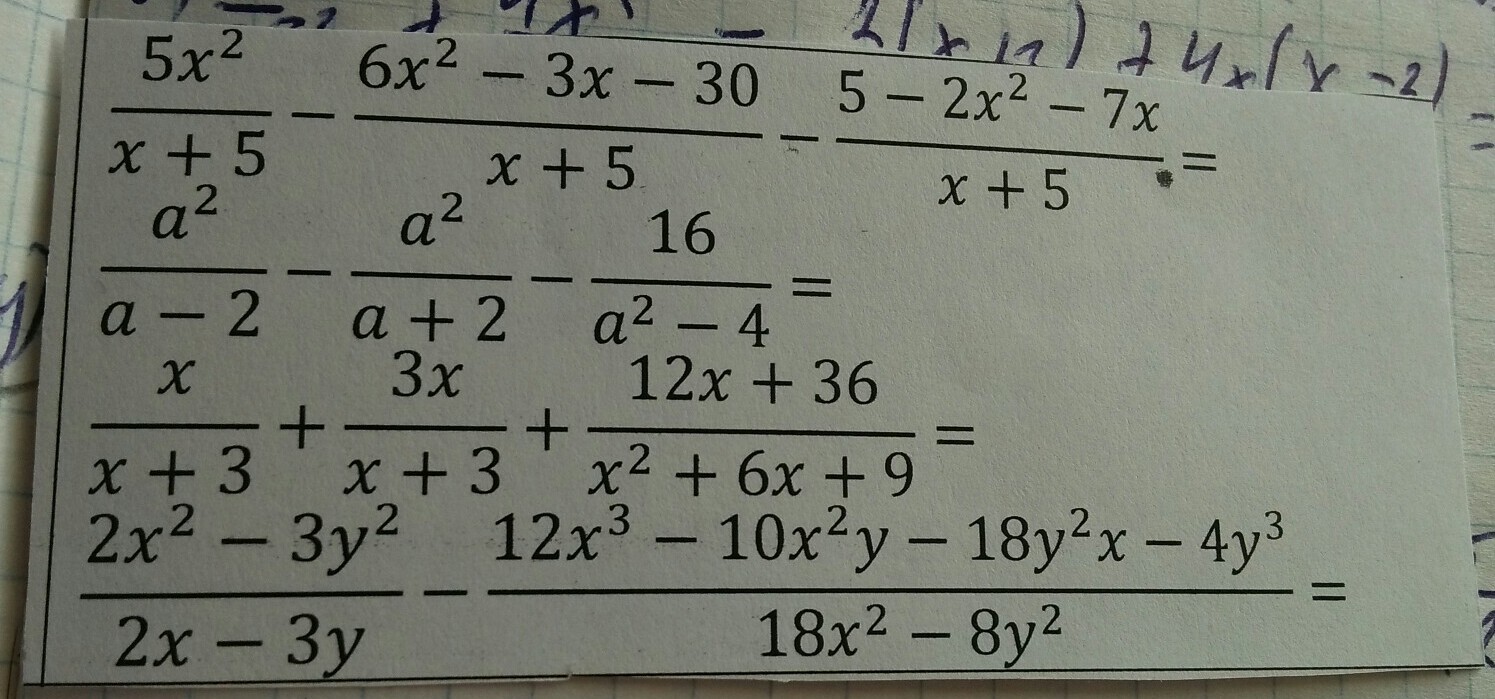 5x²/(x + 5) − (6x² − 3x − 30)/(x + 5) − (5 − 2x² − 7x)/(x + 5) =
a²/(a − 2) − a²/(a + 2) − 16/(a² − 4) =
x/(x + 3) + 3x/(x + 3) + (12x + 36)/(x² + 6x + 9) =
(2x² − 3y²)/(2x − 3y) − (12x³ − 10x²y − 18y²x − 4y³)/(18x² − 8y²) =